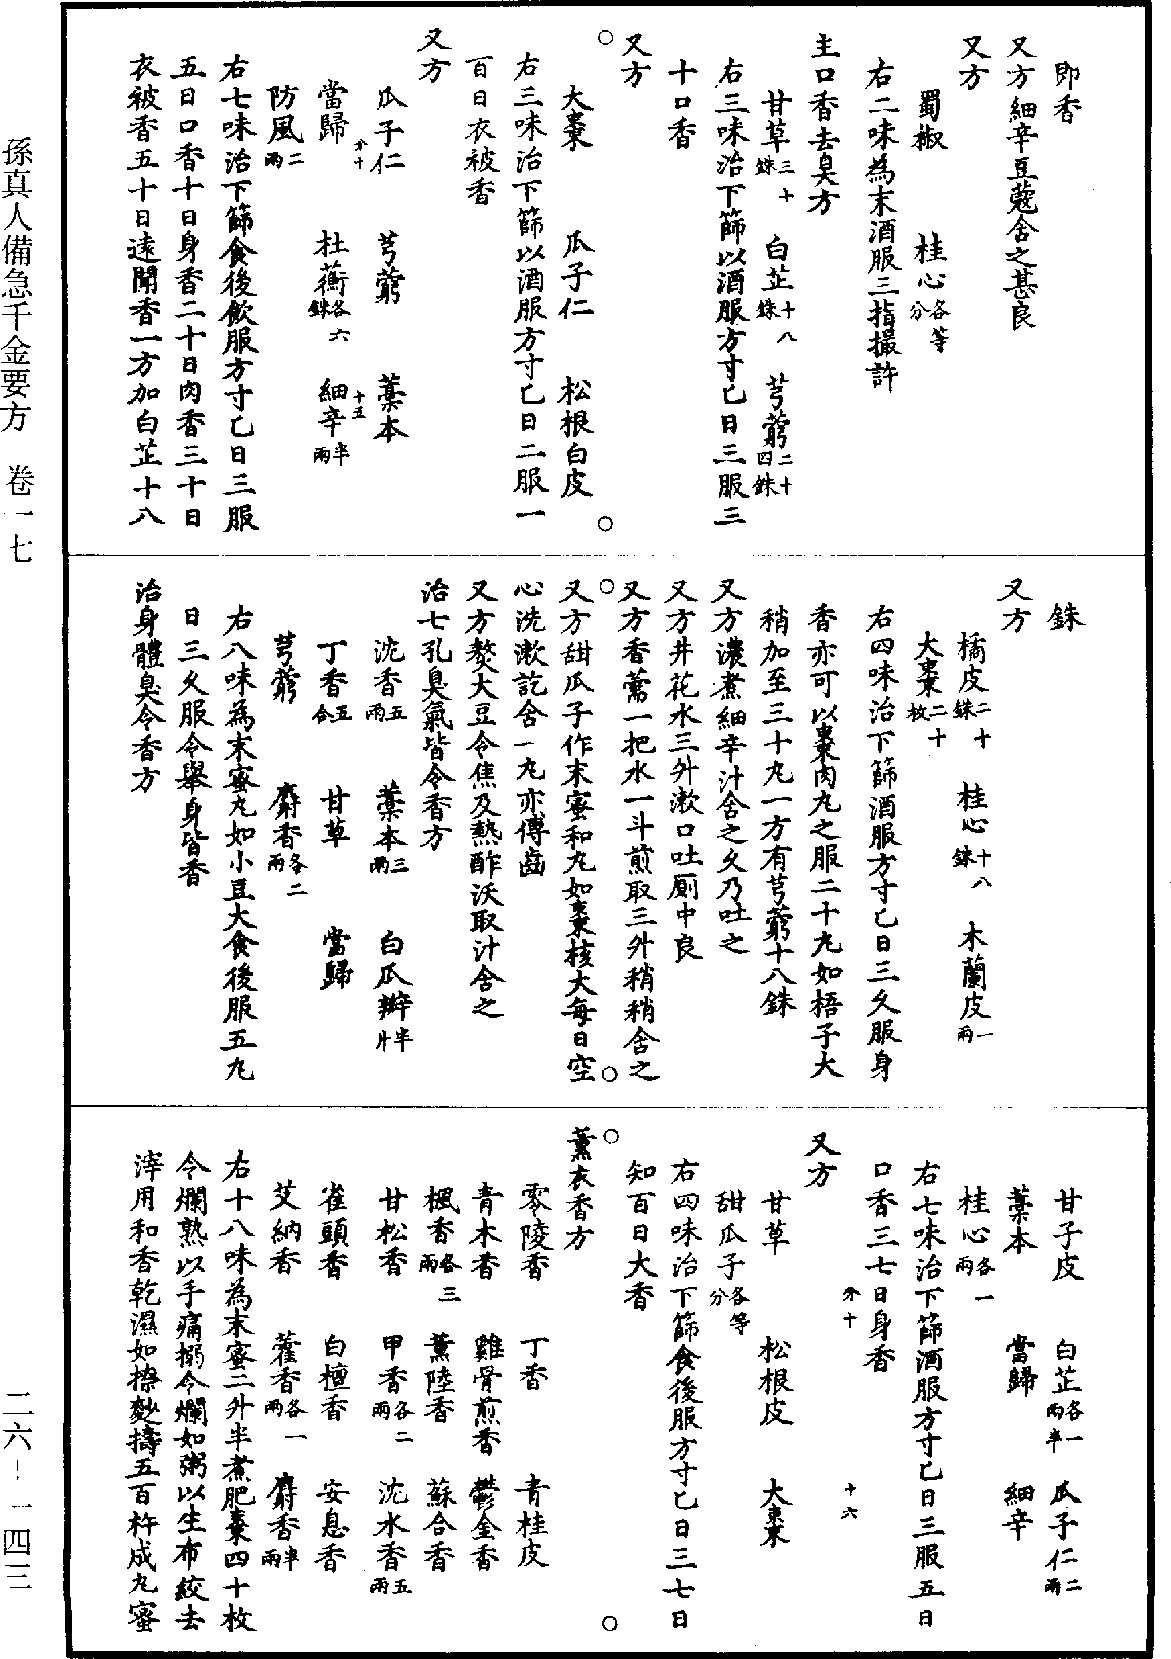 即香
又方細辛豆蔻含之甚良
又方
蜀椒　桂心各等分
右二味為末酒服三指撮許
主口香去臭方
甘草三十銖　白芷十八銖　芎藭二十四銖
右三味治下篩以酒服方寸匕日三服三
十口香
又方
大棗　瓜子仁　松根白皮
右三味治下篩以酒服方寸匕日二服一
百日衣被香
又方
瓜子仁　芎藭　藁本
當歸　杜蘅各六銖　細辛半兩
防風二兩
右七味治下篩食後飲服方寸匕日三服
五日口香十日身香二十日肉香三十日
衣被香五十日遠聞香一方加白芷十八
分十
十五
銖
又方
橘皮二十銖　桂心十八銖　木蘭皮一兩
大棗二十枚
右四味治下篩酒服方寸匕日三久服身
香亦可以棗肉丸之服二十丸如梧子大
稍加至三十丸一方有芎藭十八銖
又方濃煮細辛汁含之久乃吐之
又方井花水三升漱口吐厠中良
又方香薷一把水一斗煎取三升稍稍含之
又方甜瓜子作末蜜和丸如棗核大每日空
心洗漱訖含一丸亦傅齒
又方熬大豆令焦及熱酢沃取汁含之
治七孔臭氣皆令香方
沈香五兩　藁本三兩　白瓜瓣半片
丁香五合　甘草　當歸
芎藭　麝香各二兩
右八味為末蜜丸如小豆大食後服五丸
日三久服令舉身皆香
治身體臭令香方
甘子皮　白芷各一兩半　瓜子仁二兩
藁本　當歸　細辛
桂心各一兩
右七味治下篩酒服方寸匕日三服五日
口香三七日身香
分十
十六
又方
甘草　松根皮　大棗
甜瓜子各等分
右四味治下篩食後服方寸匕日三七日
知百日大香
薰衣香方
零陵香　丁香　青桂皮
青木香　雞骨煎香　鬱金香
楓香各三兩　薰陸香　蘇合香
甘松香　甲香各二兩　沈水香五兩
雀頭香　白檀香　安息香
艾納香　藿香各一兩　麝香半兩
右十八味為末蜜二升半煮肥棗四十枚
令爛熟以手痛搦令爛如粥以生布絞去
滓用和香乾濕如捺麨擣五百杵成丸蜜
孫真人備急千金要方　卷一七
二六－一四三